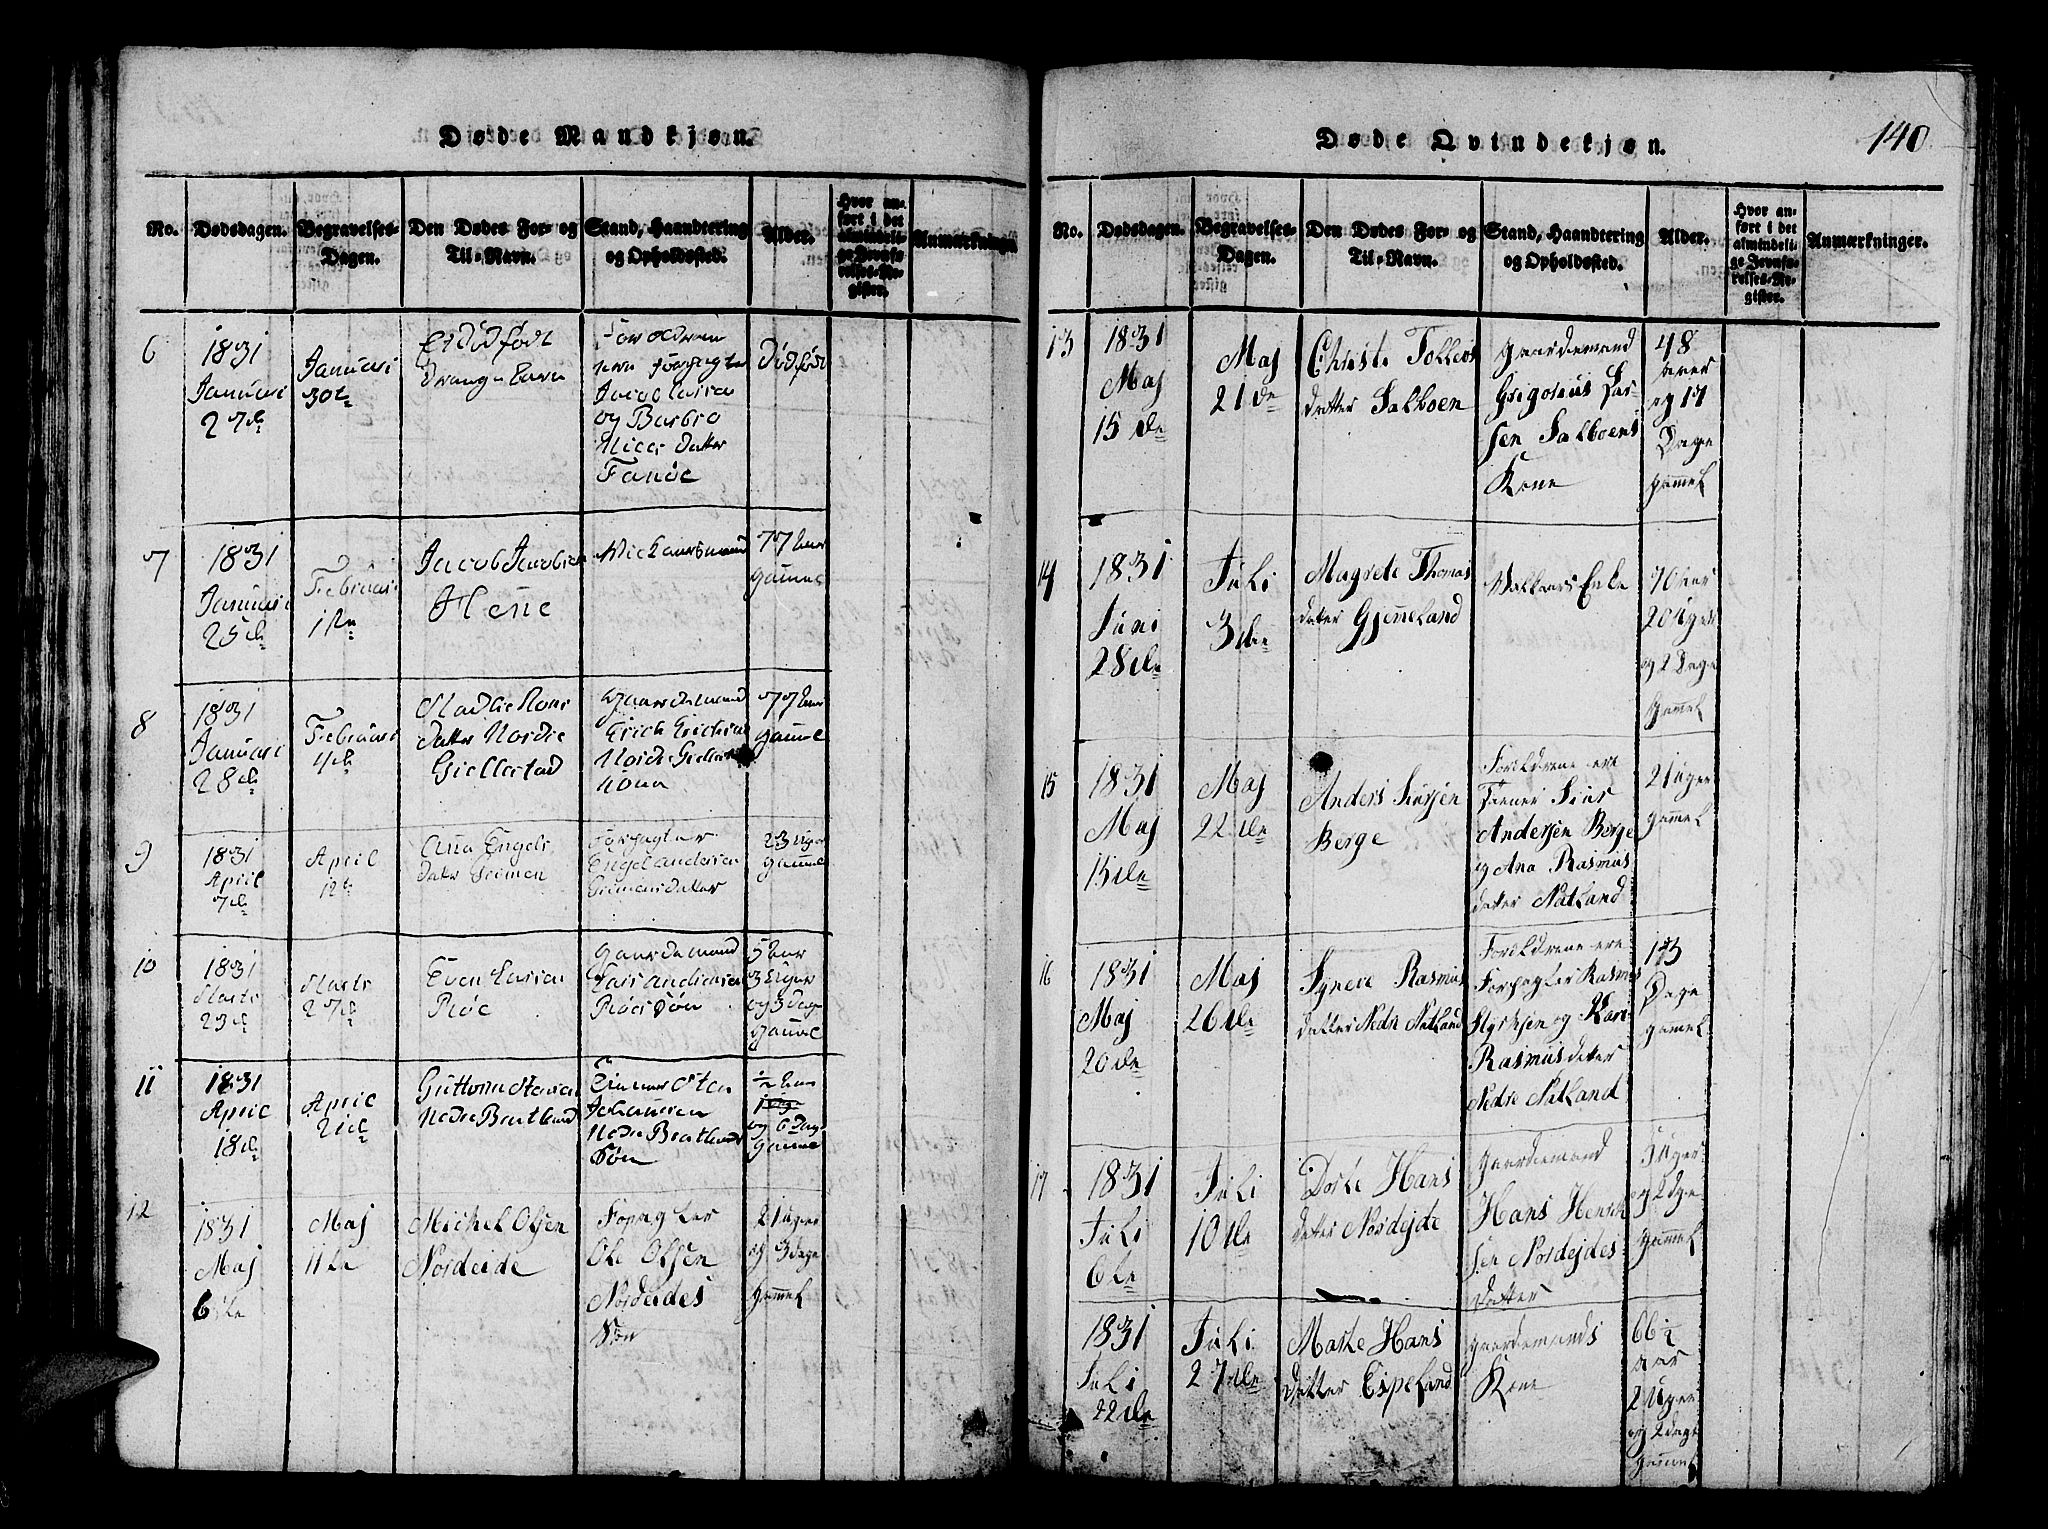 Døde Mandkjøn.
No.
Dødsdagen.
Begravelses-
Dagen.
Den Dødes For- og
Til-Navn.
Stand, Haandtering
og Opholdssted.
Alder.
Hvor an-
ført i det
almindeli-
ge Jevnfø-
relses-Re-
gister.
Anmærkninger
6
1831
Januari
27de
Januari
30te
Et dødfødt
Drænge Barn
Foreldrene
Jacob Larsen
og Barbro
Nicls Datter
Fanøe
Dødfødt
7
1831
Januari
25de
Februari
1ste
Jacob Jacobsen
Henne
77 Aar
gammel
8
1831
Januari
28de
Februari
4de
Datter Nordre
Giellestad
Gaardemand
Erich Erichsen
Nordre
Kona
77 Aar
gammel
9
1831
April
7de
April
12te
Anna Engels
Datter Grimen
Forpagter
Engel Andersen
Grimens Datter
23 Uger
gammel
10
1831
Marts
23de
Marts
27de
Even Larsen
Røe
Gaardemand
Lars Andersen
Røes Søn
5 Aar
3 Uger
og 3 Dage
gammel
11
1831
April
18de
April
21de
Guttorm
Nedre Bratland
Johannesen
Nedre Bratlands
Søn
½ Aar
og 6 Dage
gammel
12
1831
Maj
6te
Maj
11te
Michel Olsen
Nordeide
Forpagter
Ole Olsen
Nordeides
Søn
2 Uger
og 3 Dage
Gammel
Døde Qvindekjøn.
140
No.
Dødsdagen.
Begravelses-
Dagen.
Den Dødes For- og
Til-Navn.
Stand, Haandtering
og Opholdssted.
Alder.
Hvor an-
ført i det
almindeli-
ge Jevnfø-
relses-Re-
gister.
Anmærkninger.
13
1831
Maj
15de
Maj
21de
Christi Tollevs
datter Salboen
Gaardemand
Grigorius Lar-
sen Salboens
Kone
48
Aar
og 17
Dage
gammel
14
1831
Juni
28de
Juli
3de
Magrete Thomas
datter Gjemeland
Enke
70 Aar
20 Uger
og 2 Dage
gammel
15
1831
Maj
15de
Maj
22de
Anders
Berge
Foreldrene ere
Andersen Berge
og Ana Rasmus
datter Natland
2 Uger
gamel
16
1831
Maj
20de
Maj
26de
Syneve Rasmus
datter Nedre Natland
Foreldrene ere
Forpagter Rasmus
Styrksen og Kari
Rasmusdatter
Nedre Natland
Dage
gamel
17
1831
Juli
6te
Juli
10de
Dorte Hans
datter Nordejde
Gaardemand
Hans Henrik
sen Nordejdes
Datter
Uger
og 2 Dge
gammel
1831
Juli
22de
Juli
27de
Marte Hans
datter Espeland
gaardemands
Kone
66½
Aar
2 Uger
og 2 Dage
gammel